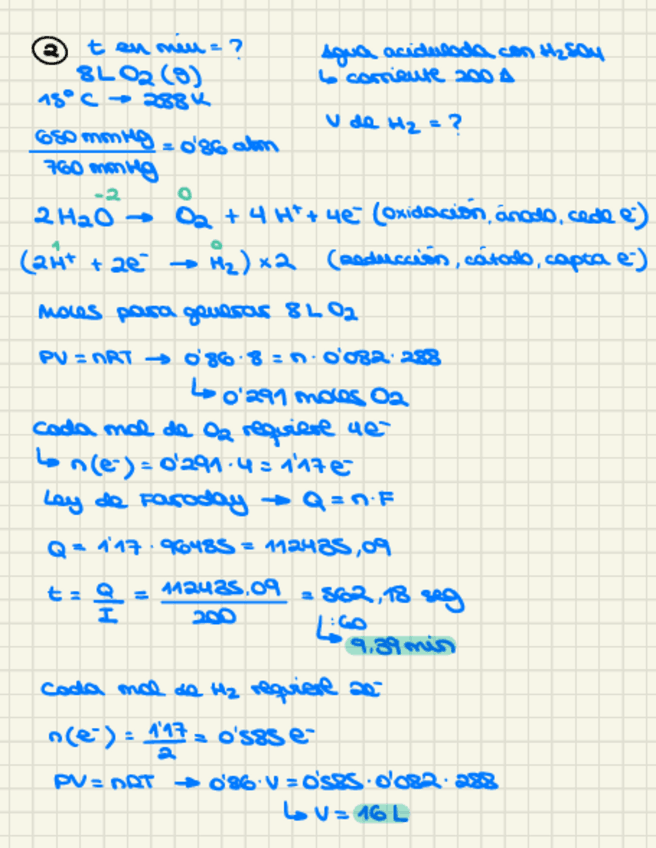 ② t en min = ?
8L O2 (g)
15° C → 288K
650 mmHg / 760 mmHg = 0'86 atm
Agua acidulada con H2SO4
↳ corriente 200 A
V de H2 = ?
-2 0
2H2O → O2 + 4H+ + 4e- (oxidación, ánodo, cede e-)
1 0
(2H+ + 2e- → H2) x 2 (reducción, cátodo, capta e-)
Moles para generar 8L O2
PV = nRT → 0'86 · 8 = n · 0'082 · 288
↳ 0'291 moles O2
Cada mol de O2 requiere 4e-
↳ n(e-) = 0'291 · 4 = 1'17e-
Ley de Faraday → Q = n·F
Q = 1'17 · 96485 = 112435,09
t = Q / I = 112435,09 / 200 = 562,18 seg
↳ :60
9,39 min
Cada mol de H2 requiere 2e-
n(e-) = 1'17 / 2 = 0'585 e-
PV = nRT → 0'86 · V = 0'585 · 0'082 · 288
↳ V = 16 L